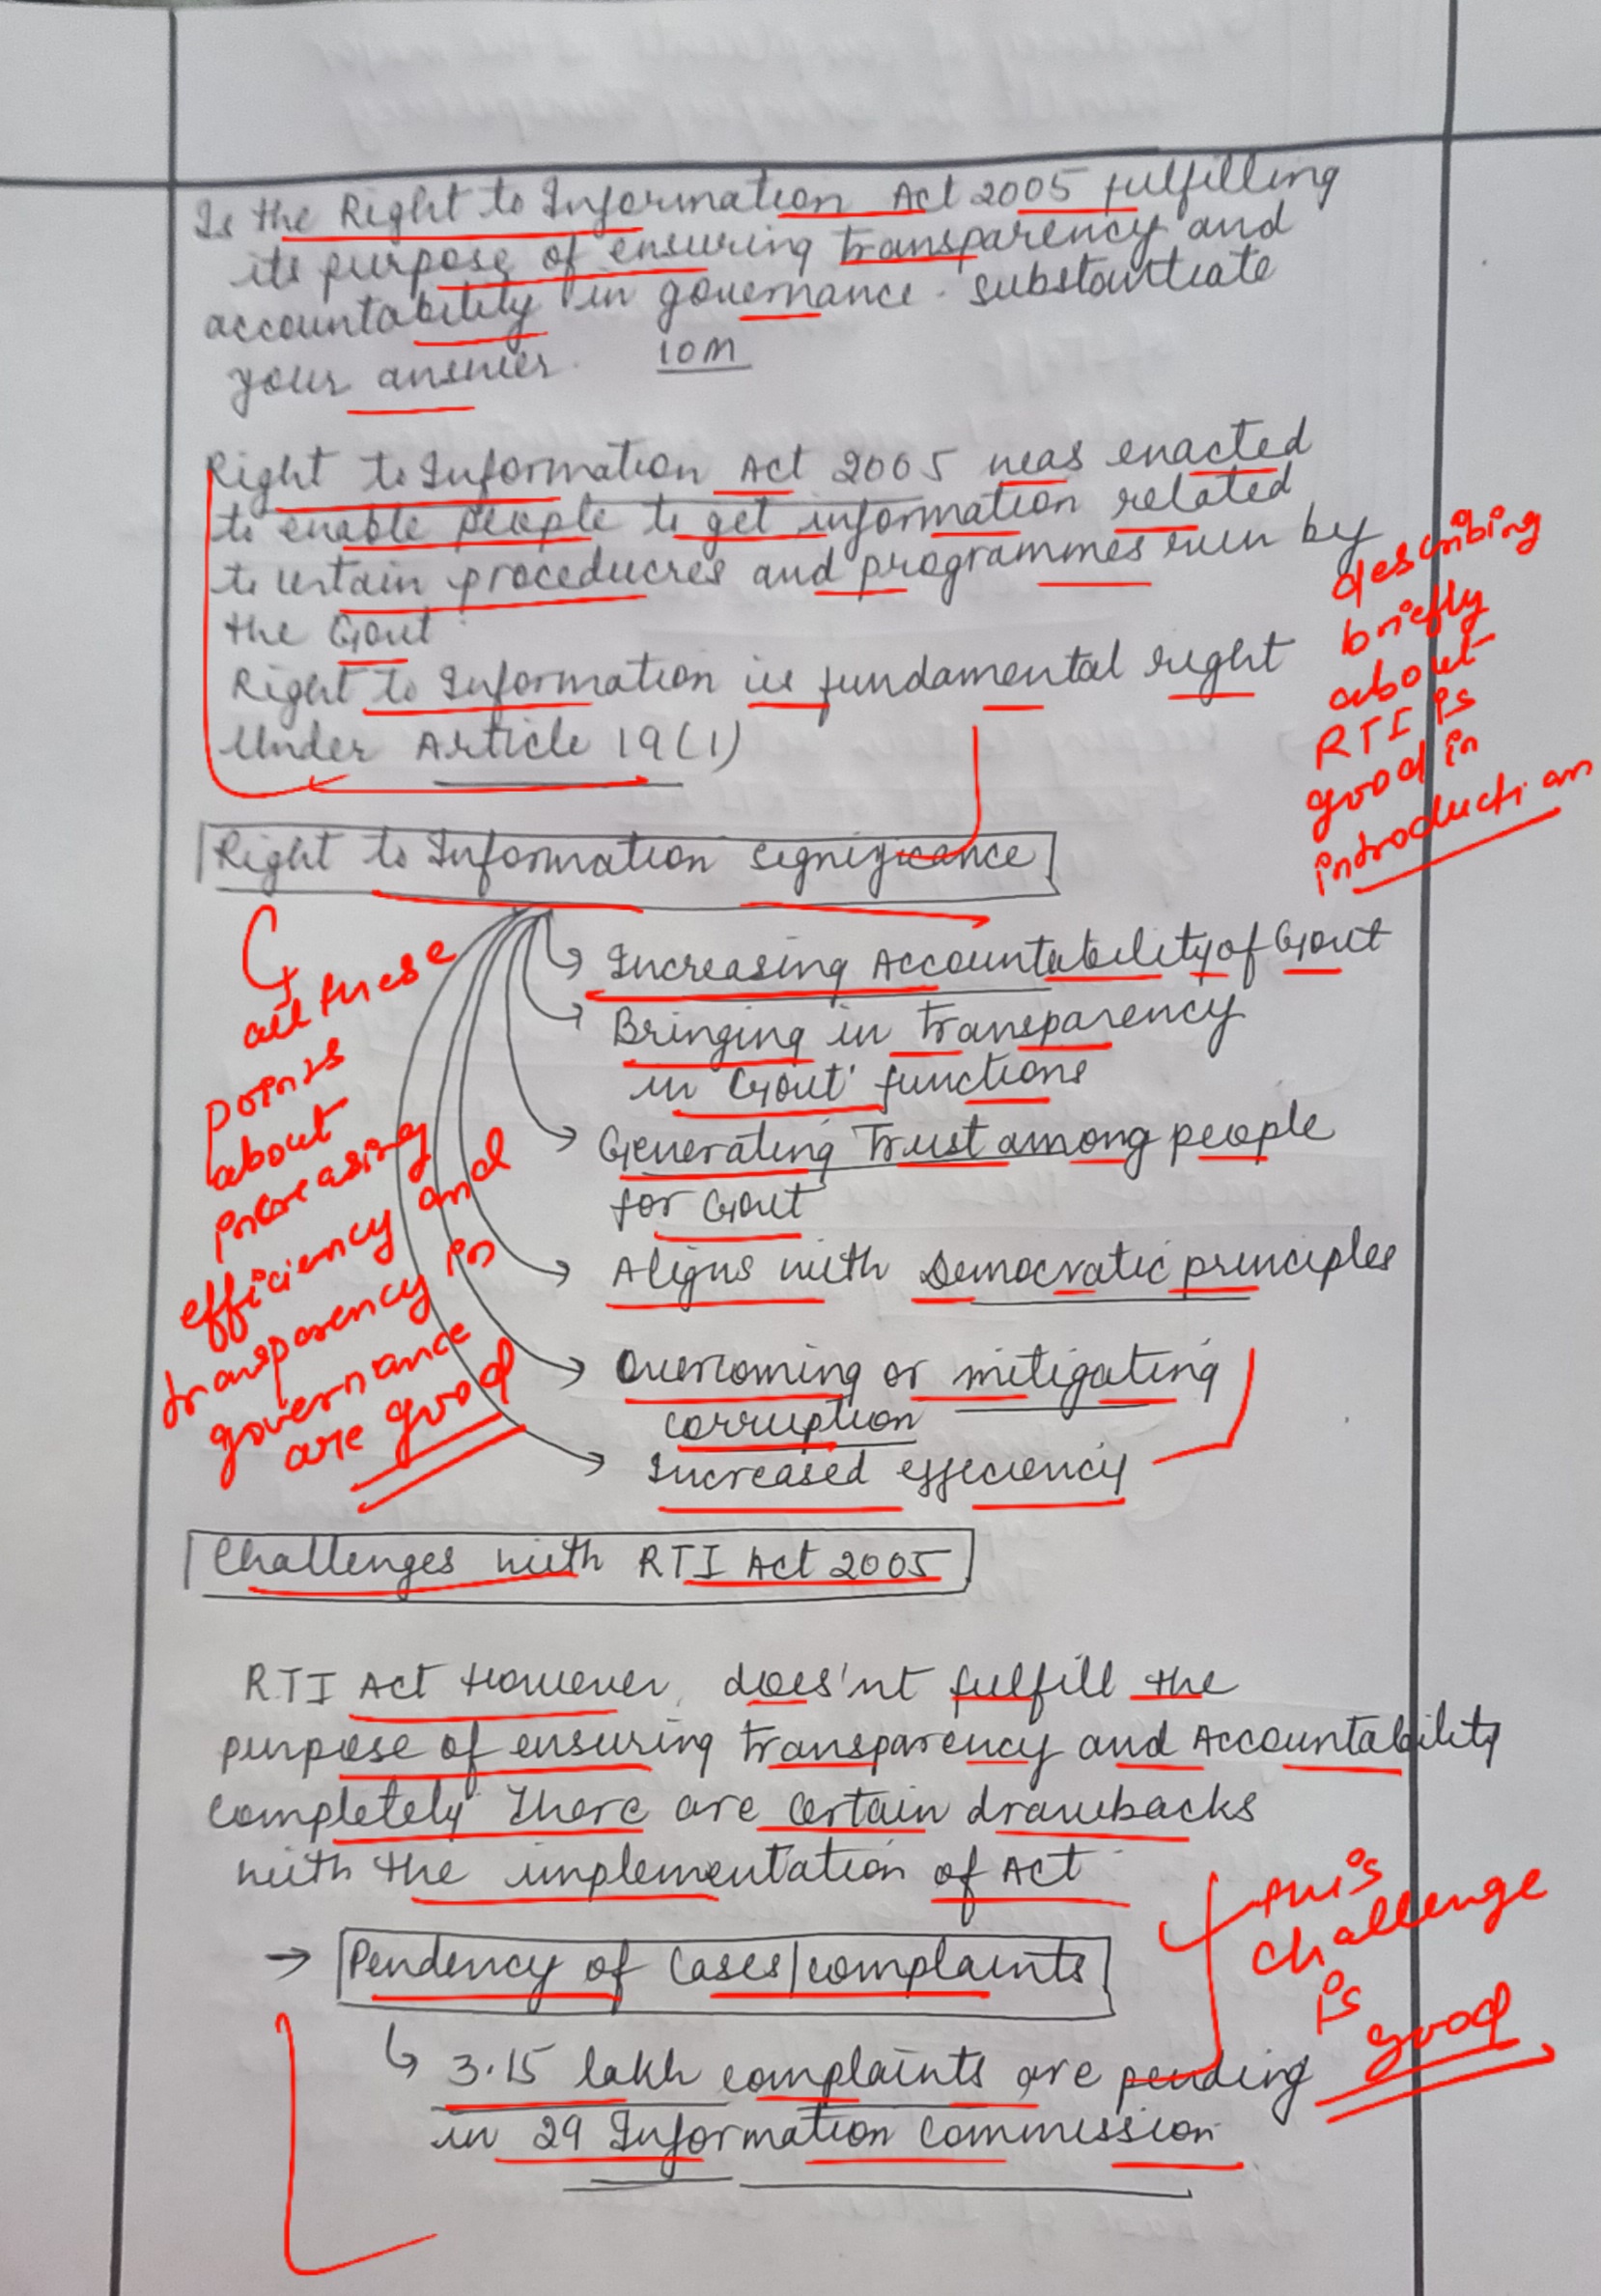 Is the Right to Information Act 2005 fulfilling
its purpose of ensuring transparency and
accountability in governance. substantiate
your answer. 10M
Right to Information Act 2005 was enacted
to enable people to get information related
to certain procedures and programmes run by
the Govt
Right to Information is fundamental right
Under Article 19(1)
describing
briefly
about
RTI is
good in
introduction
Right to Information significance
Increasing Accountability of Govt
Bringing in transparency
in Govt functions
Generating Trust among people
for Govt
Aligns with Democratic principles
Overcoming or mitigating
corruption
Increased effeciency
all these
points
about
increasing
efficiency and
transparency in
governance
are good
Challenges with RTI Act 2005
RTI Act However, does'nt fulfill the
purpose of ensuring transparency and Accountability
completely There are certain drawbacks
with the implementation of Act
→ Pendency of Cases/complaints
↳ 3.15 lakh complaints are pending
in 29 Information Commission
this
challenge
is
good